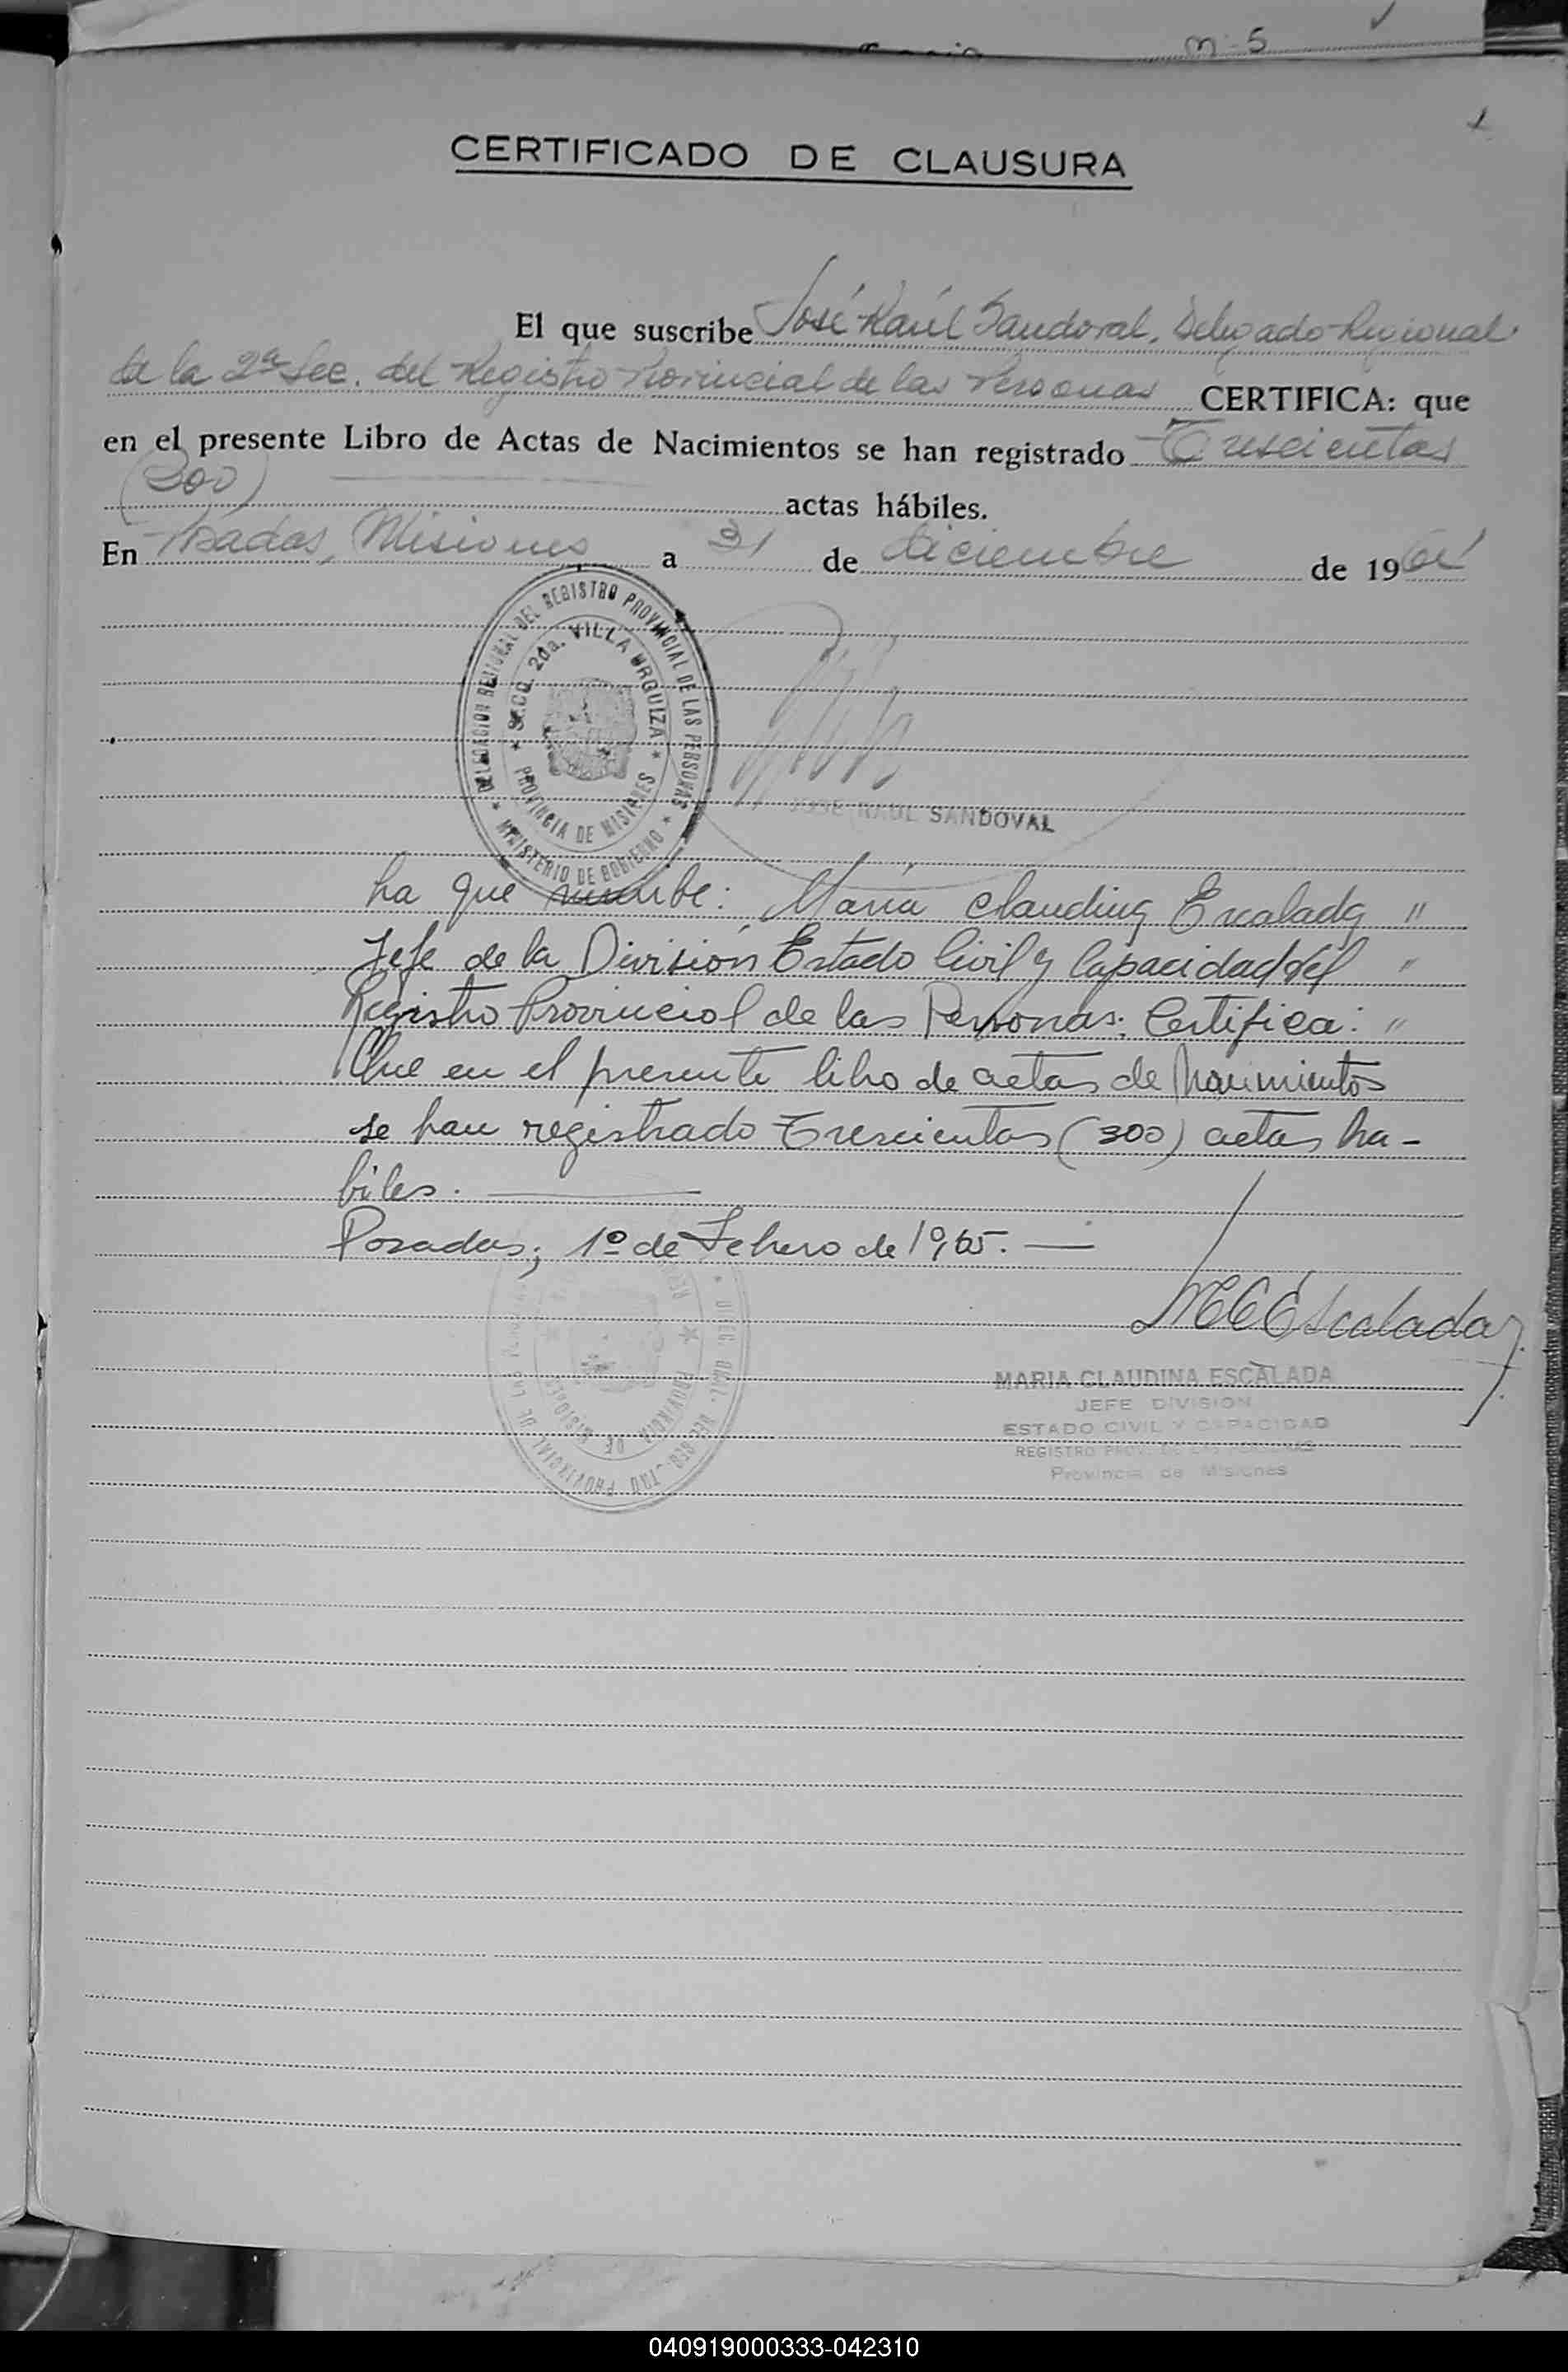 m-5
CERTIFICADO DE CLAUSURA
El que suscribe José Raúl Sandoval, Delegado Regional
de la 2ª Sec. del Registro Provincial de las Personas CERTIFICA: que
en el presente Libro de Actas de Nacimientos se han registrado Trescientas
(300) actas hábiles.
En Posadas, Misiones a 31 de diciembre de 196
DELEGACION REGIONAL DEL REGISTRO PROVINCIAL DE LAS PERSONAS
★ MINISTERIO DE GOBIERNO ★
★ SECC. 2da. VILLA URQUIZA ★
PROVINCIA DE MISIONES
JOSE RAUL SANDOVAL
La que suscribe: María Claudina Escalada "
Jefe de la División Estado Civil y Capacidad del "
Registro Provincial de las Personas; Certifica: "
Que en el presente libro de actas de Nacimientos
se han registrado Trescientas (300) actas ha-
biles.
Posadas, 1º de Febrero de 1965.
MCEscalada
MARIA CLAUDINA ESCALADA
JEFE DIVISION
ESTADO CIVIL Y CAPACIDAD
REGISTRO PROV. DE LAS PERSONAS
Provincia de Misiones
PROVINCIA DE MISIONES
040919000333-042310